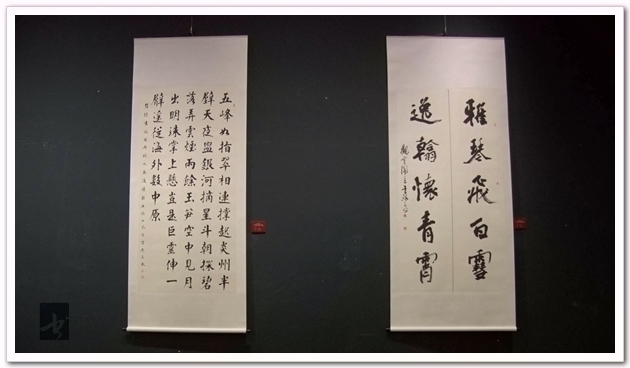 雅琴飛白雪
逸翰懷青霄
五峰如指翠相連撐起炎州半
壁天夜盥銀河摘星斗朝探碧
落弄雲煙雨餘玉筍空中見月
出明珠掌上懸豈是巨靈伸一
臂遙從海外數中原